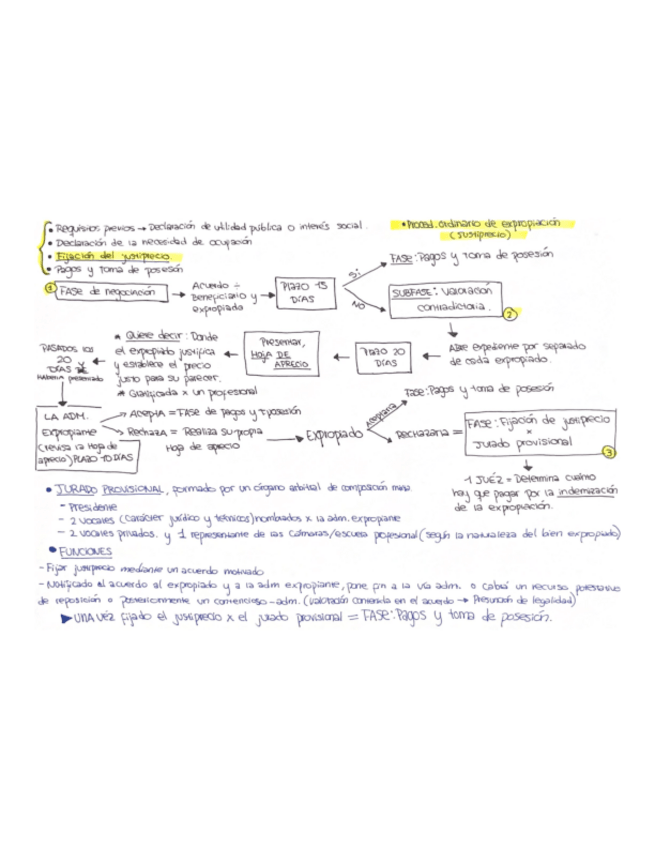 • Requisitos previos → Declaración de utilidad pública o interés social.
• Declaración de la necesidad de ocupación
• Fijación del justiprecio.
• Pagos y toma de posesión
• Proced. ordinario de expropiación
(justiprecio)
① FASE de negociación → Acuerdo ÷ Beneficiario y expropiado → PLAZO 15 DÍAS
Sí
FASE: Pagos y toma de posesión
NO
SUBFASE: Valoración contradictoria. ②
ABRE expediente por separado de cada expropiado.
PLAZO 20 DÍAS
Presentar, HOJA DE APRECIO
* Quiere decir: Donde el expropiado justifica y establece el precio justo para su parecer.
* Cualificada x un profesional
PASADOS los 20 DÍAS
Haberla presentado
LA ADM. Expropiante (revisa la Hoja de aprecio) PLAZO 10 DÍAS
→ Acepta = FASE de pagos y t.posesión
→ Rechaza = Realiza su propia Hoja de aprecio
→ Expropiado
Aceptarla
FASE: Pagos y toma de posesión
Rechazarla =
FASE: Fijación de justiprecio x Jurado provisional ③
1 JUÉZ = Determina cuanto hay que pagar por la indemización de la expropiación.
• JURADO PROVISIONAL, formado por un órgano arbitral de composición mixta
- Presidente
- 2 vocales (carácter jurídico y técnicos) nombrados x la adm. expropiante
- 2 vocales privados. y 1 representante de las cámaras/escuela profesional (según la naturaleza del bien expropiado)
• FUNCIONES
- Fijar justiprecio mediante un acuerdo motivado
- Notificado el acuerdo al expropiado y a la adm expropiante, pone fin a la vía adm. o cabía un recurso potestativo
de reposición o posteriormente un contencioso-adm. (valoración contenida en el acuerdo → Presunción de legalidad)
► UNA VEZ fijado el justiprecio x el jurado provisional = FASE: Pagos y toma de posesión.